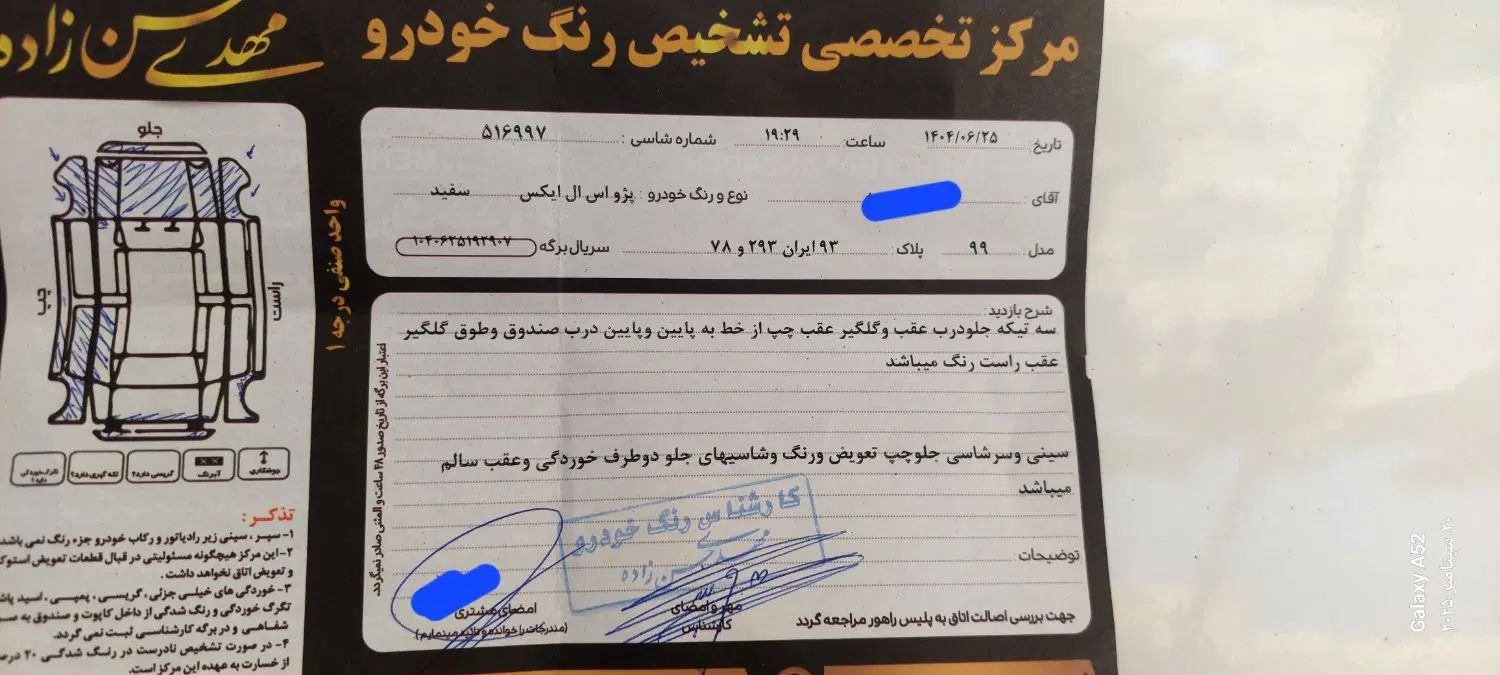 مرکز تخصصی تشخیص رنگ خودرو
مهدی حسن زاده
تاریخ: ۱۴۰۴/۰۶/۲۵ ساعت: ۱۹:۲۹ شماره شاسی: ۵۱۶۹۹۷
آقای: نوع و رنگ خودرو: پژو اس ال ایکس سفید
مدل: ۹۹ پلاک: ۹۳ ایران ۲۹۳ و ۷۸ سریال برگه ۱۰۴۰۶۲۵۱۹۲۹۰۷
شرح بازدید:
سه تیکه جلودرب عقب وگلگیر عقب چپ از خط به پایین وپایین درب صندوق وطوق گلگیر
عقب راست رنگ میباشد
سینی وسرشاسی جلوچپ تعویض ورنگ وشاسیهای جلو دوطرف خوردگی وعقب سالم
میباشد
توضیحات
کارشناس رنگ خودرو
حسن زاده
مهر و امضای
کارشناس
امضای مشتری
(مندرجات را خوانده و تائید مینمایم)
جهت بررسی اصالت اتاق به پلیس راهور مراجعه گردد
اعتبار این برگه از تاریخ صدور ۴۸ ساعت و المثنی صادر نمیگردد.
واحد صنفی درجه ۱
جلو
چپ
راست
جوشکاری
آبرنگ
گریسی دارد؟
لکه گیری دارد؟
تگرگ خوردگی دارد؟
تذکر:
۱- سپر، سینی زیر رادیاتور و رکاب خودرو جزء رنگ نمی باشد
۲- این مرکز هیچگونه مسئولیتی در قبال قطعات تعویض استوک
و تعویض اتاق نخواهد داشت.
۳- خوردگی های خیلی جزئی، گریسی، پمپی، اسید پاش
تگرگ خوردگی و رنگ شدگی از داخل کاپوت و صندوق به
شفاهی و در برگه کارشناسی ثبت نمی گردد.
۴- در صورت تشخیص نادرست در رنگ شدگی ۲۰
از خسارت به عهده این مرکز است.
Galaxy A52
۲۰ سپتامبر ۲۰۲۵